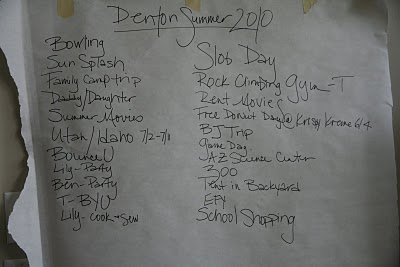 Denton Summer 2010
Bowling
Sun Splash
Family camp trip
Daddy/Daughter
Summer Movies
Utah/Idaho 7/2-7/11
Bounce U
Lily-Party
Ben-Party
T-BYU
Lily-Cook+Sew
Slob Day
Rock Climbing gym-T
Rent Movies
Free Donut Day@Krispy Kreme 6/4
BJ Trip
game Day
AZ Science Cntr
300
Tent in Backyard
EFY
School Shopping